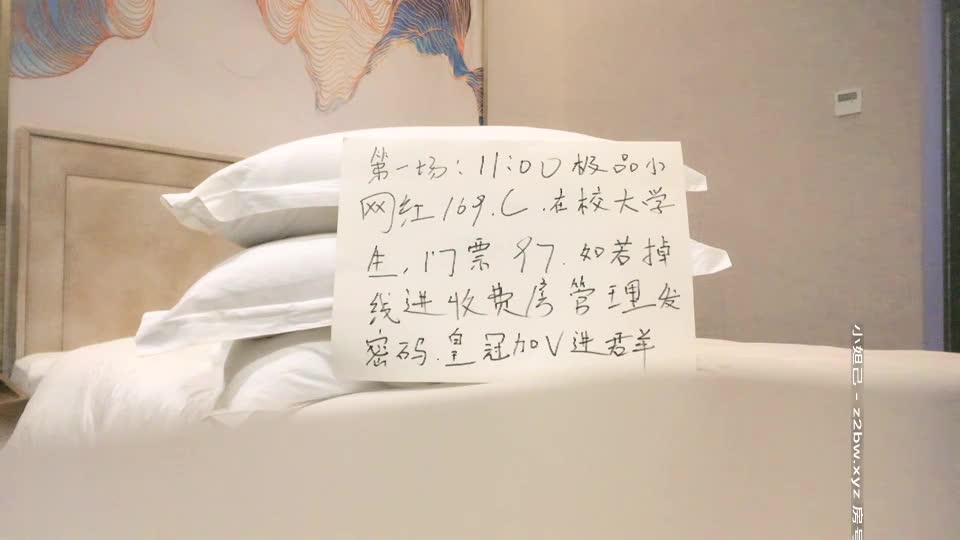 第一场：11:00极品小
网红169.C.在校大学
生,门票97.如若掉
线进收费房管理发
密码.皇冠加V进君羊
小妲己 - z2bw.xyz 房号